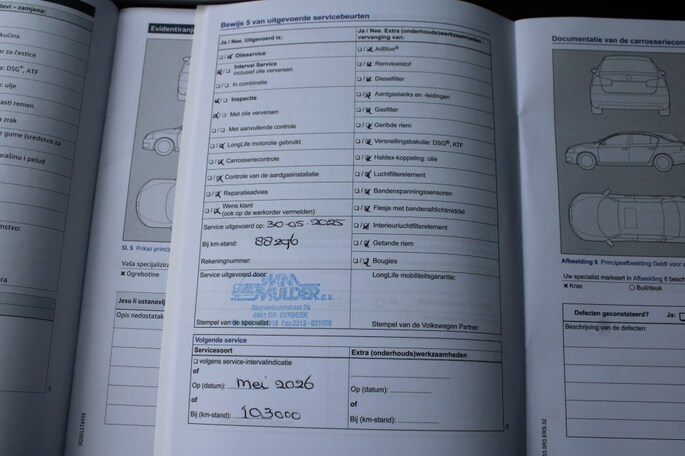 tevi – zamjena:
kućina
ac za čestice
a: DSG®, ATF
: ulje
asti remen
a zrak
e gume (sredstvo za
orašinu i pelud
mstvo:
Evidentiranj
Sl. 5 Prikaz princip
Vaša specijalizira
Ogrebotine
Jesu li ustanovlj
Opis nedostatak
Bewijs 5 van uitgevoerde servicebeurten
Ja / Nee. Uitgevoerd is:
Olieservice
Interval Service
Inclusief olie verversen
In combinatie
Inspectie
Met olie verversen
Met aanvullende controle
LongLife motorolie gebruikt
Carrosseriecontrole
Controle van de aardgasinstallatie
Reparatieadvies
Wens klant
(ook op de werkorder vermelden)
Service uitgevoerd op: 30-05-2025
Bij km-stand: 88296
Rekeningnummer:
Service uitgevoerd door:
WIM
MULDER B.V.
Stempel van de specialist:
Ja / Nee. Extra (onderhouds)werkzaamheden
vervanging van:
AdBlue®
Remvloeistof
Dieselfilter
Aardgastanks en -leidingen
Gasfilter
Geribde riem
Versnellingsbakolie: DSG®, ATF
Haldex-koppeling: olie
Luchtfilterelement
Bandenspanningssensoren
Flesje met bandenafdichtmiddel
Interieurluchtfilterelement
Getande riem
Bougies
LongLife mobiliteitsgarantie:
Stempel van de Volkswagen Partner
Volgende service
Servicesoort
volgens service-intervalindicatie
of
Op (datum): mei 2026
of
Bij (km-stand): 103000
Extra (onderhouds)werkzaamheden
Op (datum):
of
Bij (km-stand):
Documentatie van de carrosseriecon
Afbeelding 6 Principeafbeelding Geldt voor
Uw specialist markeert in Afbeelding 6 besch
Kras
Buil/deuk
Defecten geconstateerd? Ja:
Beschrijving van de defecten: